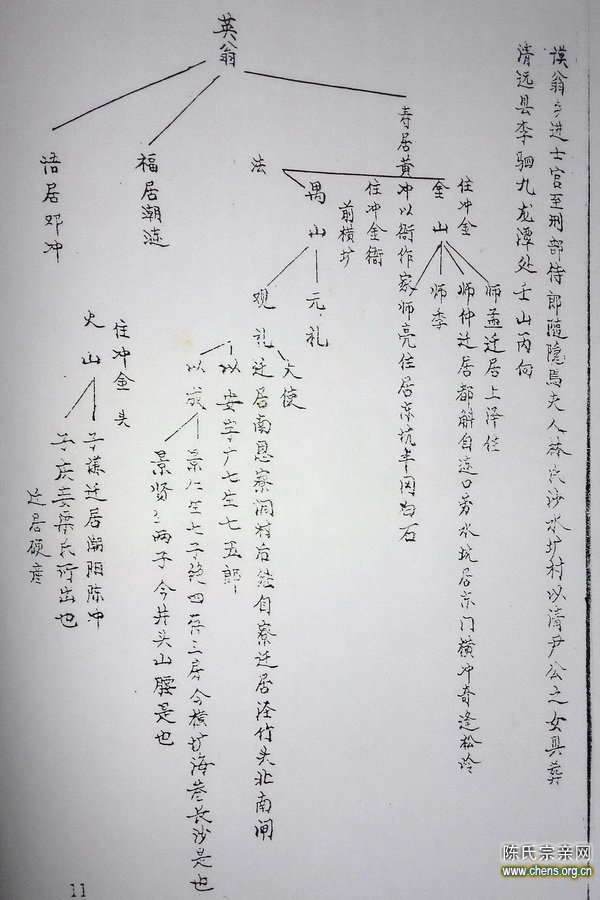 谟翁乡进士官至刑部侍郎随隐马夫人林氏沙水圹村以清尹公之女具葬
清远县李驷九龙潭处壬山丙向
英翁
寿居黄冲以衙作家
福居潮涟
语居邓冲
法
住冲金
金山
住冲金衙
前横圹
禺山
师孟迁居上泽住
师仲迁居都斛自涟口旁水坑居京门横冲奇逢松岭
师季
师亮住居京坑丰冈白石
元礼
观礼迁居南恩寮洞村后继自寮迁居泾竹头北南闸
大使
以安字广七生七五郎
以成
景仁生七子绝四存三房今横圹海巷长沙是也
景贤三两子今井头山腰是也
住冲金头
火山
子谦迁居潮阳陈冲
子庆妾梁氏所出也
迁居
陈氏宗亲网
www.chens.org.cn
11